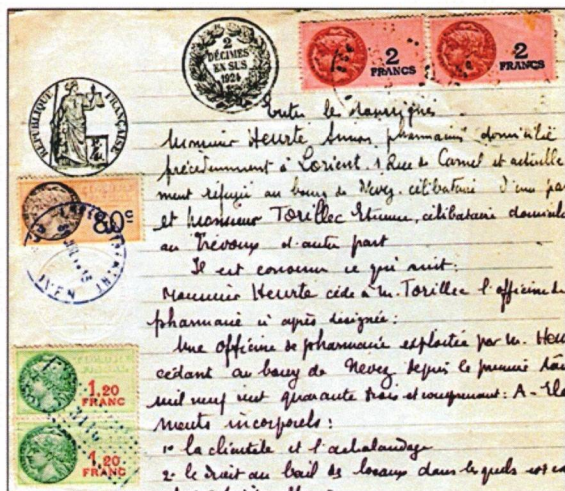 2
DÉCIMES
EN SUS
1924
2
FRANCS
2
FRANCS
RÉPUBLIQUE FRANÇAISE
80c
1,20
FRANC
1,20
FRANC
Entre les soussignés
Monsieur Heurté pharmacien domicilié
précédemment à Lorient. 1 Rue de Carnel et actuelle
ment réfugié au bourg de Nevez. célibataire d'une par
et Monsieur Torillec Etienne, célibataire domicilié
au Trévoux d'autre part
Il est convenu ce qui suit:
Monsieur Heurté cède à M. Torillec l'officine de
pharmacie ci après désignée:
Une officine de pharmacie exploitée par M. Heur
cédant au bourg de Nevez depuis le premier
mil neuf cent quarante trois et comprenant: A- Elé
ments incorporels:
1º la clientèle et l'achalandage
2º le droit au bail des locaux dans lesquels est